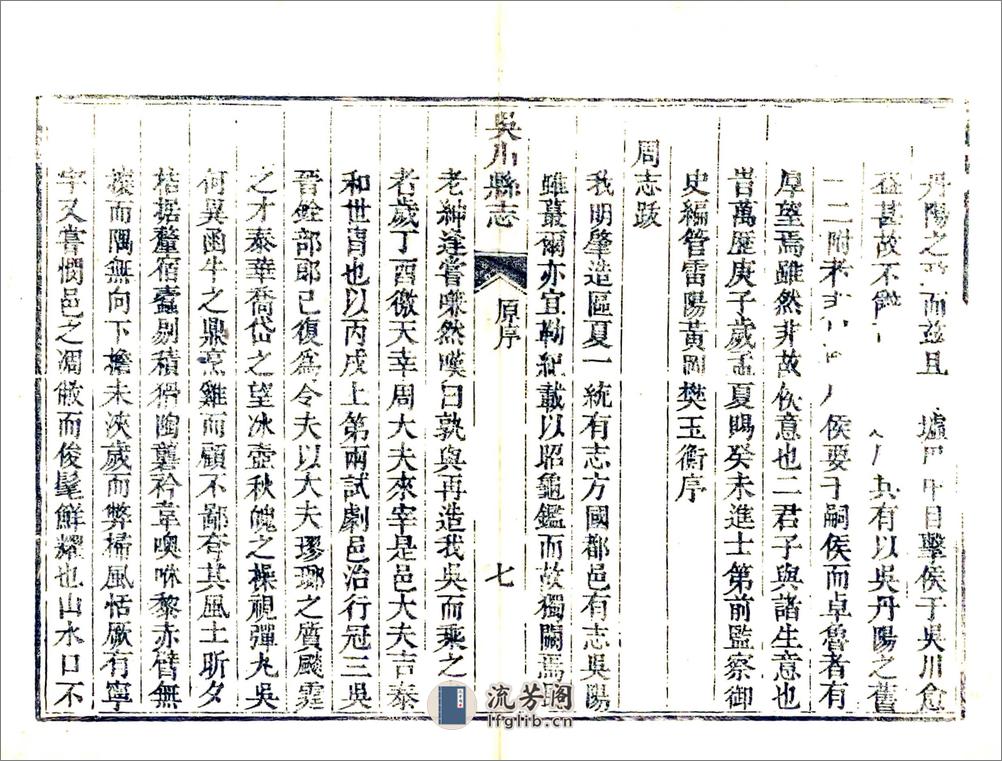 丹陽之 而茲且 墟 中目擊侯于吳川愈
益甚故不 兵有以吳丹陽之舊
二附者 侯要于嗣侯而卓魯者有
厚望焉雖然非故侯意也二君子與諸生意也
峕萬歷庚子歲孟夏賜癸未進士第前監察御
史編管雷陽黃岡樊玉衡序
周志跋
我明肇造區夏一統有志方國郡邑有志吳陽
雖蕞爾亦宜勒紀載以昭龜鑑而故獨闕焉
吳川縣志 原序 七
老紳逢嘗喟然嘆曰孰與再造我吳而乘之
者歲丁酉徼天幸周大夫來宰是邑大夫吉泰
和世冑也以丙戌上第兩試劇邑治行冠三吳
晉銓部郎已復為令夫以大夫璆瑯之質颷霆
之才泰華喬岱之望冰壺秋魄之操視彈丸吳
何異函牛之鼎烹雞而顧不鄙夸其風土昕夕
拮据釐宿蠹剔積猾陶襲衿韋噢咻黎赤臂無
榱而隅無向下擔未浹歲而弊掃風恬厥有寧
宇又嘗憫邑之凋敝而俊髦鮮耀也山水口不
流芳阁
lfglib.com